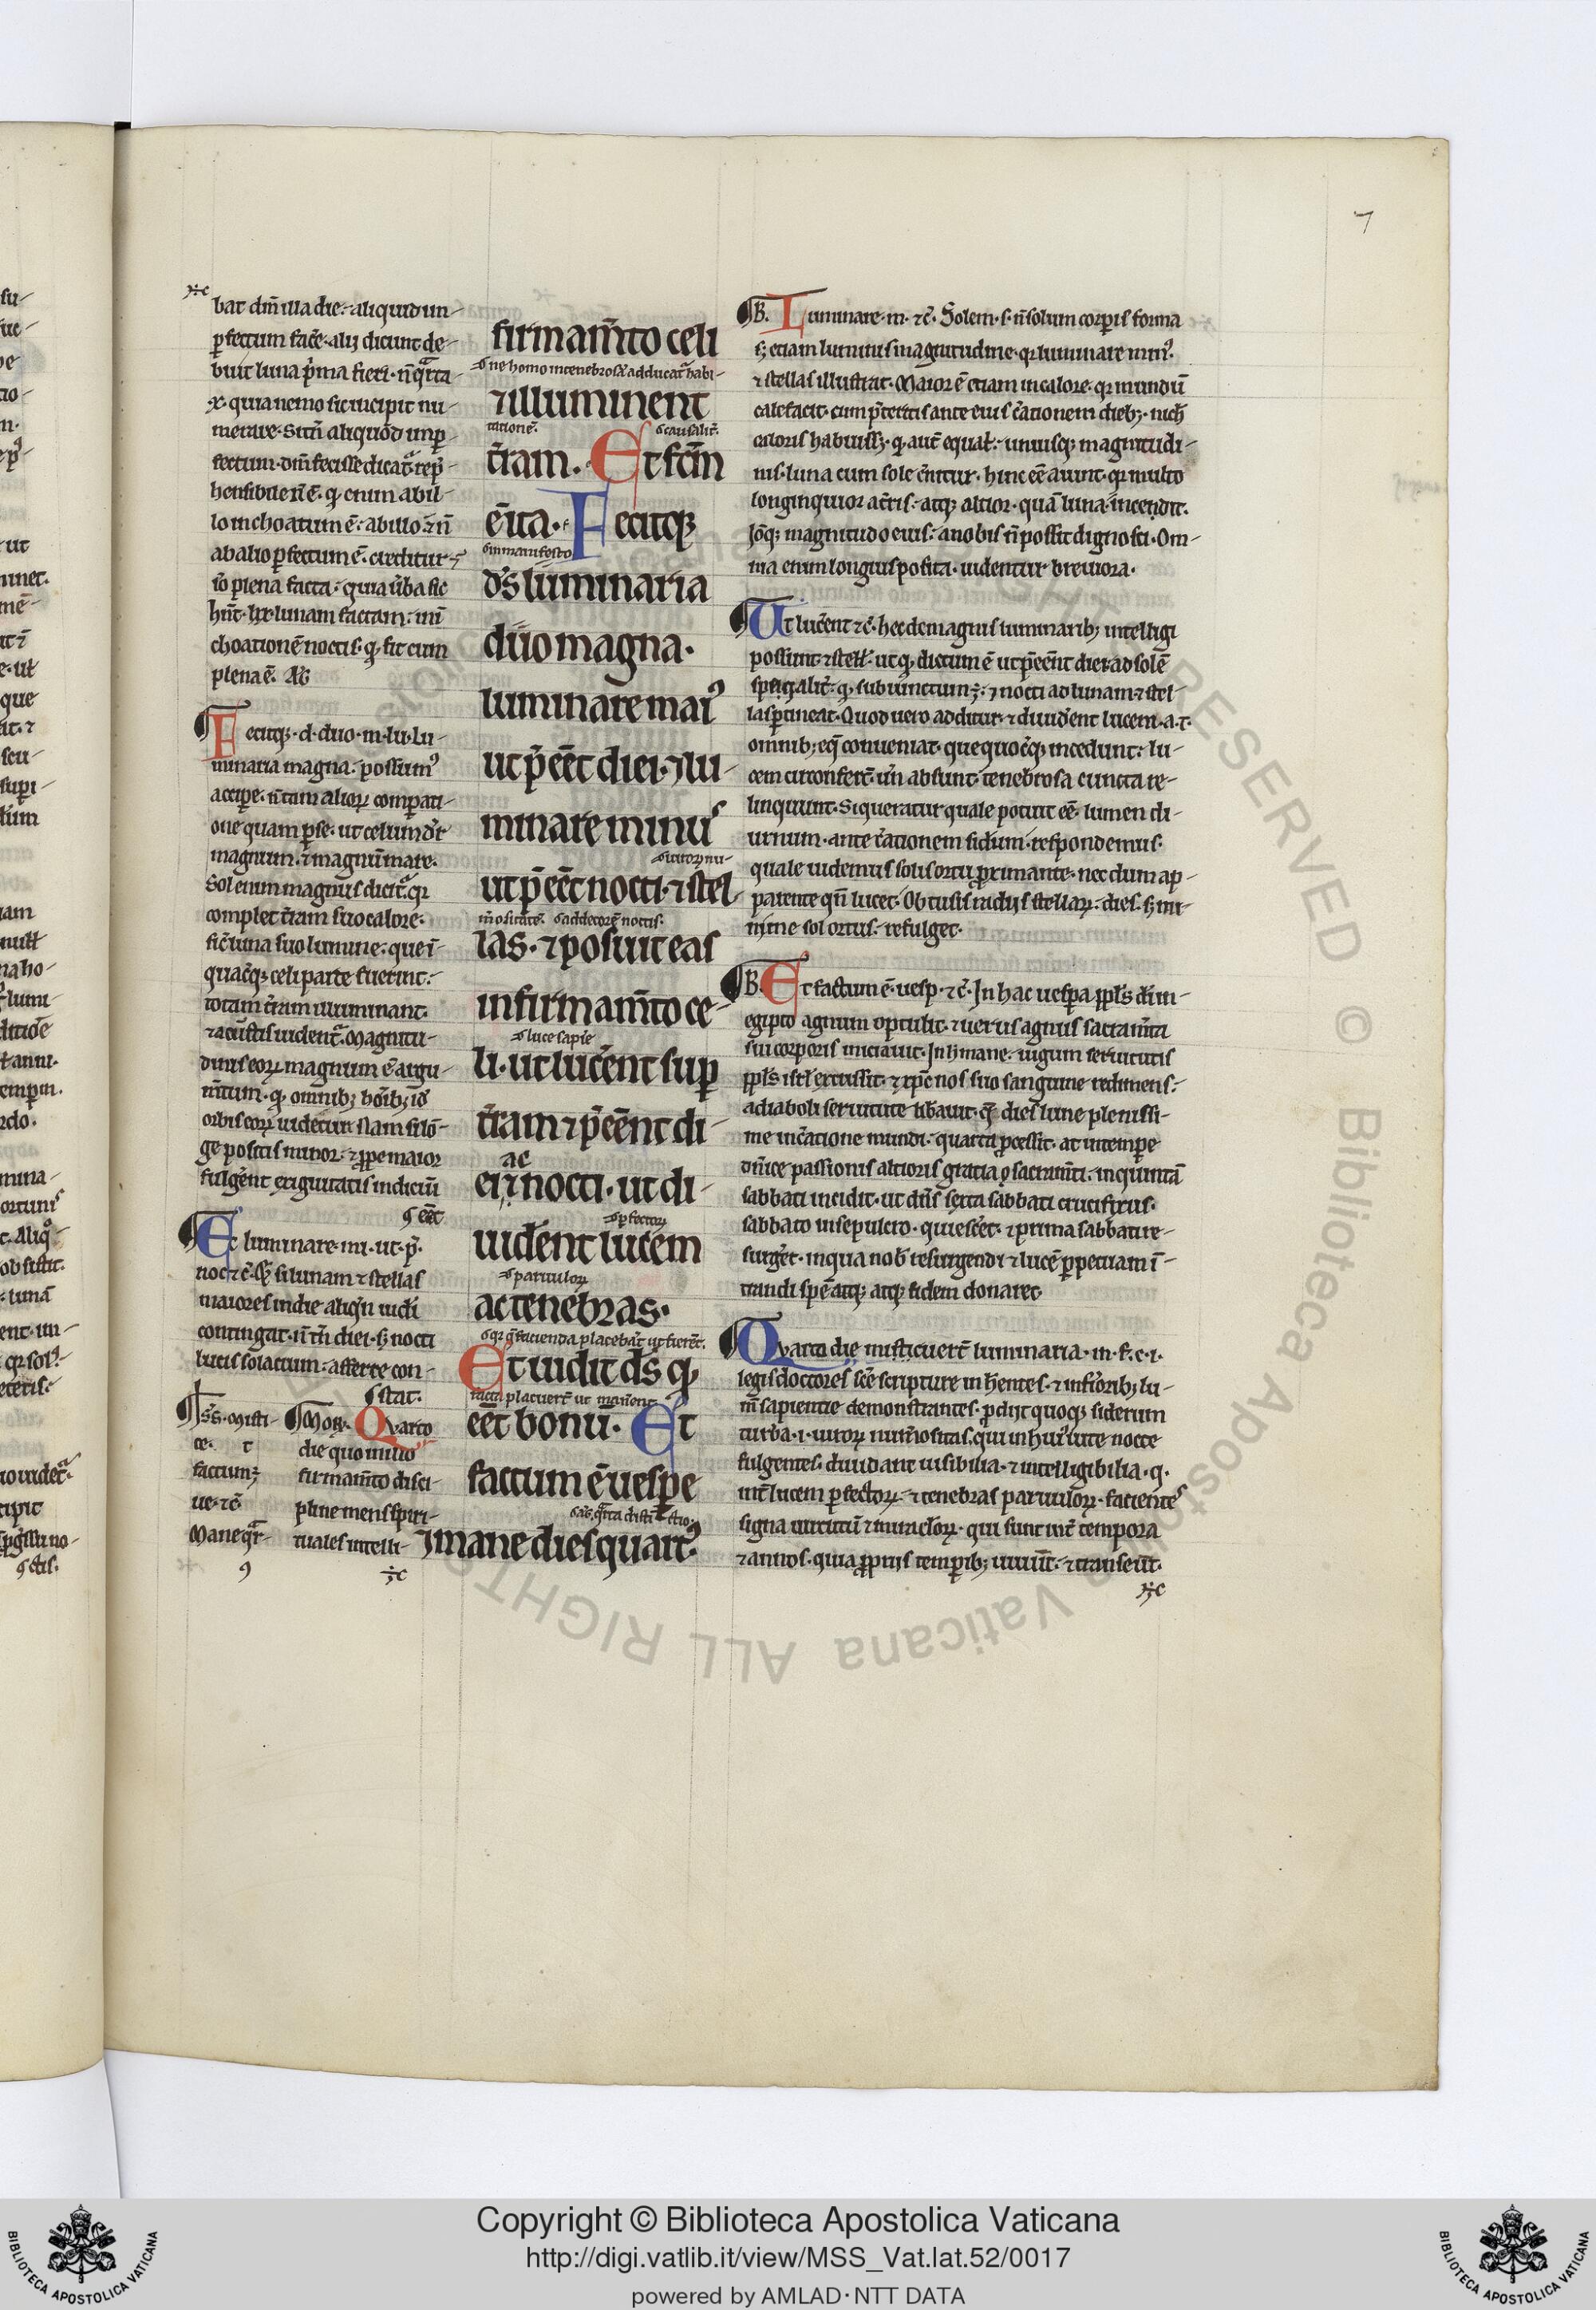 7
bat dn̄ illa die· aliquid im-
ꝑfectum fac̄e· alij dicunt de-
buit luna p̃ma fieri· n̄ qᵃrta
x· quia nemo sic incipit nu-
merare· Si tn̄ aliquod imꝑ-
fectum· dn̄m fecisse dicat᷑ rep̃-
hensibile n̄ ē· qd enim ab il-
lo inchoatum ē· ab illo ⁊ n̄
ab alio ꝑfectum ē· creditur
plena facta· quia ūba sic
hn̄t· lxx lunam factam· in
choationē noctis· qd fit cum
plena ē·
Fecitqꝫ· d· duo· m· lu· Lu-
minaria magna· possumꝰ
accipe· n̄ tam alioꝝ compati-
one quam ꝑ se· ut celum dr̄
magnum· ⁊ magnū mare·
Sol enim magnus dicit᷑ qr
complet t̃ram suo calore·
sic̄ luna suo lumine· que ī
quac̄qꝫ celi parte fuerint·
totam t̃ram illuminant·
⁊ a cūctis uident᷑· Magnitu-
dinis eoꝝ magnum ē argu-
m̄tum· qd omnibꝫ hoībꝫ id
orbis eoꝝ uidetur· Nam si lō-
ge positis minor· ⁊ ꝓpe maior
fulgēt exiguitatis indiciū
eēt
Et luminare· mi· ut· p̃·
noc̄ ⁊ c̄· Sꝫ si lunam ⁊ stellas
maiores in die aliqn̄ uidi
contingat· n̄ tn̄ diei· sꝫ nocti
lucis solatium· afferre con-
stat·
misti-
ce· t
factumꝫ
ue· ⁊ c̄·
Mane qᵃr
Moꝝ· Quarto
die quo in illo
firmam̄to disci-
pline mens spiri-
tuales intelli-
firmam̄to celi
ne homo in tenebrosꝰ adducat᷑ habi-
⁊ illuminent
tationē· causalit̄·
t̃ram· Et fc̄m
ē ita· Fecitqꝫ
in manifesto
ds̄ luminaria
duo magna·
luminare maiꝰ
ut p̃eēt diei· ⁊ lu-
minare minus
ut p̃eēt nocti· ⁊ stel-
m̄ositatē· ad decorē noctis·
las· ⁊ posuit eas
in firmam̄to ce-
luce sapīe
li· ut lucēnt suꝑ
t̃ram ⁊ p̃eēnt di-
ac
ei ⁊ nocti· ut di-
ꝑfectoꝝ
uidēnt lucem
paruuloꝝ
ac tenebras·
qr q̄ facienda placebāt ut fierēt·
Et uidit ds̄ qd
facta placuer̄t ut manērt
eēt bonū· Et
factum ē uesꝑe
⁊ mane dies quartꝰ
B· Luminare· m· ⁊ c̄· Solem· s· n̄ solum corꝑis forma
sꝫ etiam luminis magnitudine· qr luminare minꝰ·
⁊ stellas illustrat· Maior ē etiam in calore· qr mundū
calefacit· cum p̃teritis ante eius c̃ationem diebꝫ· nich
caloris habuissꝫ· qd aut̄ equal· uniusqꝫ magnitudi-
nis· luna cum sole c̄nitur· hinc eē aiunt· qr multo
longinquior a t̃ris· atqꝫ altior· quā luna· incendit·
Iōqꝫ magnitudo eius· a nobis n̄ possit dignosci· Om-
nia enim longius posita· uidentur breuiora·
Ut lucēnt ⁊ c̄· hec de magnis luminaribꝫ intelligi
possunt· ⁊ stell· ut qd dictum ē ut p̃eēnt diei· ad solē
spetialit̄· qd subiūnctum ꝫ· ⁊ nocti ad lunam ⁊ stel-
las ꝑtineat· Quod uero additur· ⁊ diuidēnt lucem· a· t·
omnibꝫ eq̄ conueniat· que quoc̄qꝫ incedunt· lu-
cem circonfer̄t· un̄ absunt tenebrosa cuncta re-
linquunt· Si queratur quale potuit eē· lumen di-
urnum· ante c̃ationem sidum· respondemus·
quale uidemus solis ortu ꝓximante· nec dum ap-
parente qn̄ lucet· Obtusis radijs stellaꝝ· dies· sꝫ mi-
nime sol ortus· refulget·
B· Et factum ē· uesp· ⁊ c̄· In hac uesꝑa ppl̄s dī in
egipto agnum optulit· ⁊ uerus agnus sacram̄ta
sui corporis iniciauit· In h mane· iugum seruitutis
ppl̄s isrl excussit· ⁊ xp̄c nos suo sanguine redimens·
a diaboli seruitute libauit· dies lune plenissi-
me in c̃atione mundi· quarta ꝓcessit· at in tempe
dn̄ice passionis altioris gratia sacram̄ti· in quintā
sabbati incidit· ut dn̄s sexta sabbati crucifixus·
sabbato in sepulcro· quiescēt· ⁊ prima sabbati re-
surgēt· in qua nob resurgendi ⁊ lucē ꝑpetuam ī-
trandi spē atqꝫ atqꝫ fidem donaret
Quarto die mistice uer̄t luminaria· in· f· c· i·
legis doctores sc̄e scripture inh̄entes· ⁊ inf̄ioribꝫ lu-
m̄ sapientie demonstrantes· ꝓdijt quoqꝫ siderum
turba· i· uirtoꝝ num̄ositas· qui in huiꝰ uite nocte
fulgentes· diuidant uisibilia· ⁊ intelligibilia· q·
int̄ lucem ꝑfectoꝝ· ⁊ tenebras paruuloꝝ· facientes
signa uirtutū ⁊ miracl̄oꝝ· qui sunt int̄ tempora
⁊ annos· quia ꝓprijs temꝑibꝫ uiuūt· ⁊ transeūt·
Copyright © Biblioteca Apostolica Vaticana
http://digi.vatlib.it/view/MSS_Vat.lat.52/0017
powered by AMLAD·NTT DATA
BIBLIOTECA APOSTOLICA VATICANA
BIBLIOTECA APOSTOLICA VATICANA
© Biblioteca Apostolica Vaticana ALL RIGHTS RESERVED